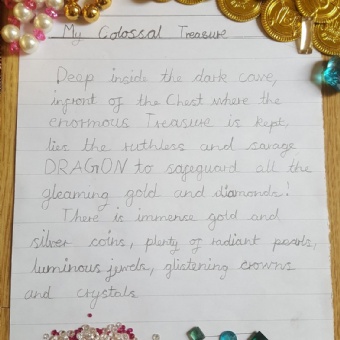 My Colossal Treasure
Deep inside the dark cave,
infront of the Chest where the
enormous Treasure is kept,
lies the ruthless and savage
DRAGON to safeguard all the
gleaming gold and diamonds!
There is immense gold and
silver coins, plenty of radiant pearls,
luminous jewels, glistening crowns
and crystals